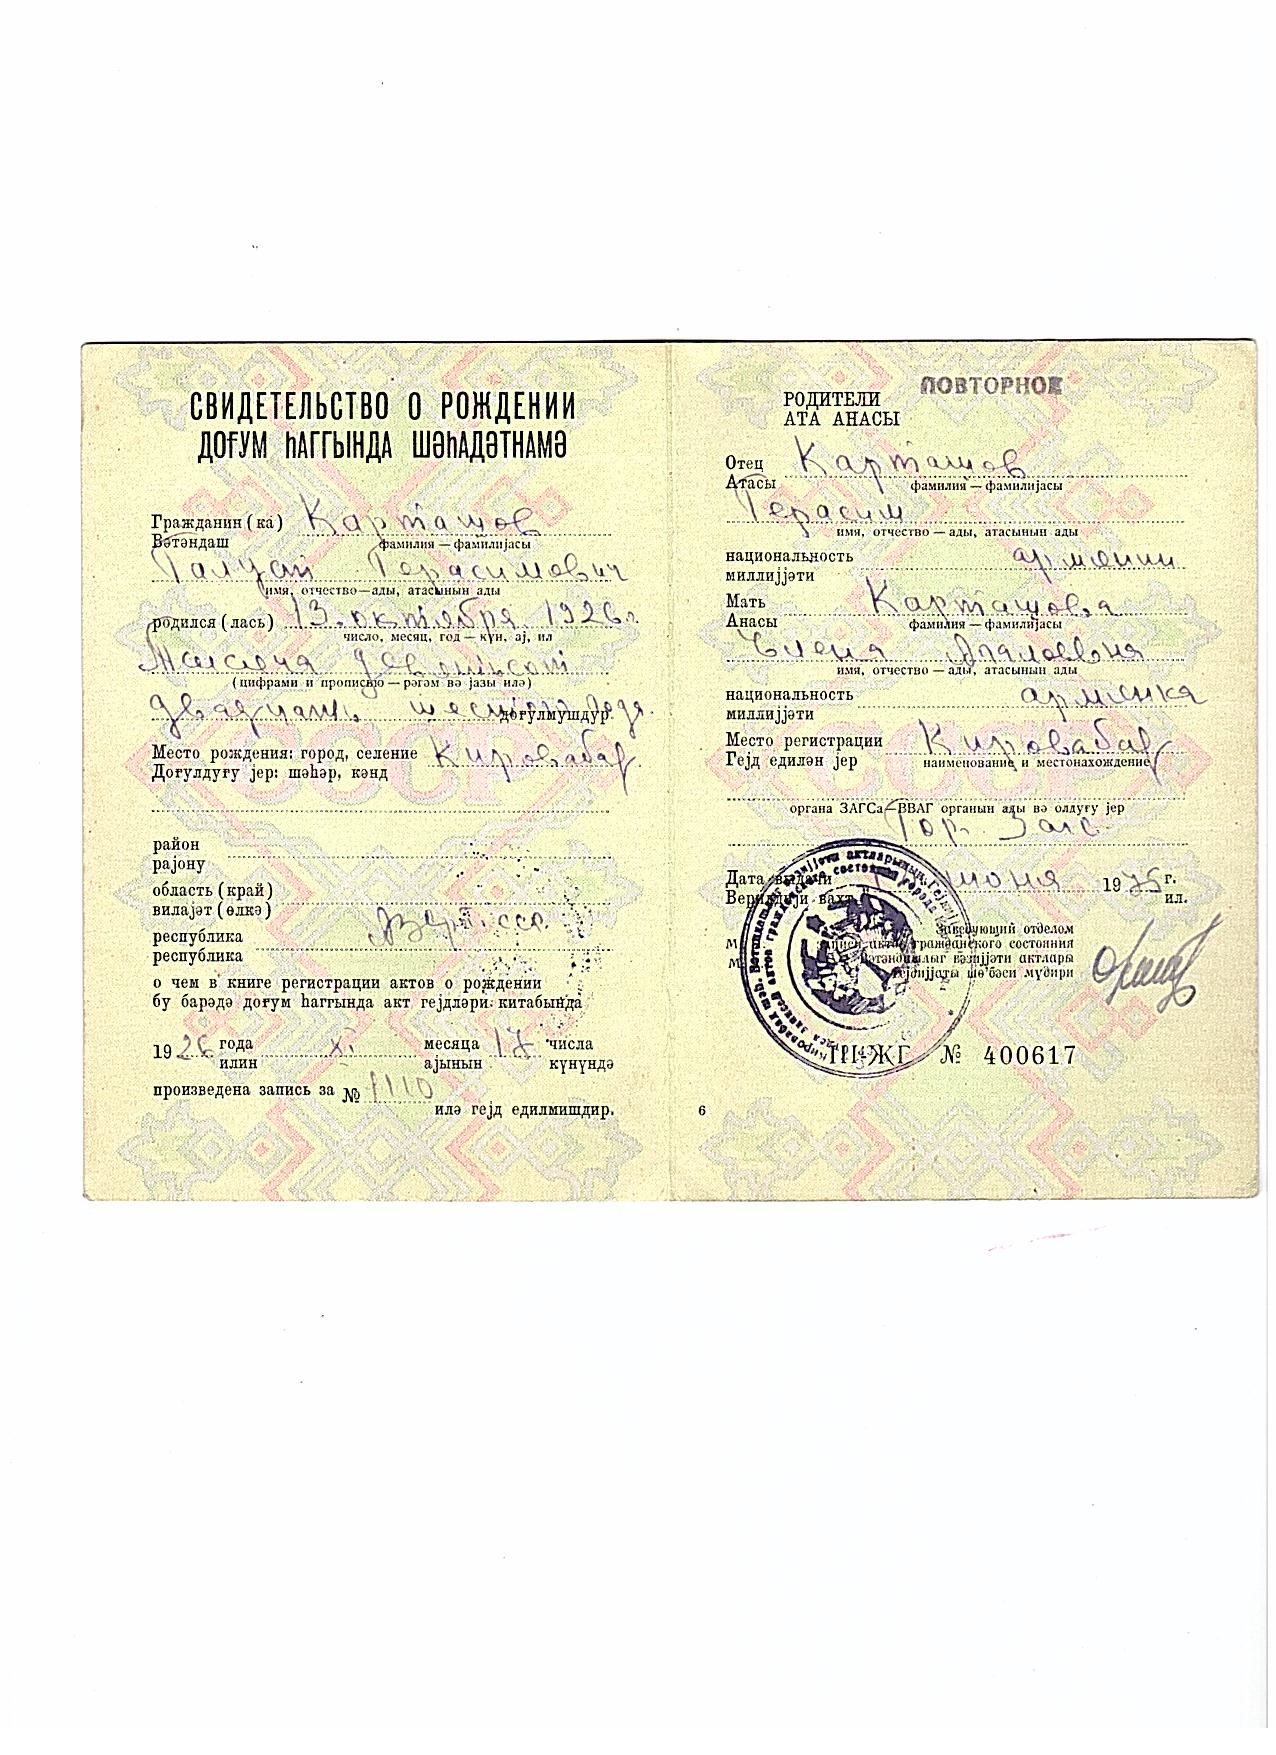 СВИДЕТЕЛЬСТВО О РОЖДЕНИИ
ДОҒУМ ҺАГГЫНДА ШӘҺАДӘТНАМӘ
Гражданин (ка) Карташов
Вәтәндаш фамилия — фамилијасы
Галуст Герасимович
имя, отчество — ады, атасынын ады
родился (лась) 13. октября 1926 г.
число, месяц, год — күн, ај, ил
Тысяча девятьсот
(цифрами и прописью — рәгәм вә јазы илә)
двадцать шестого года.
доғулмушдур.
Место рождения: город, селение Кировабад
Доғулдуғу јер: шәһәр, кәнд
район
рајону
область (край)
вилајәт (өлкә)
республика Аз. ССР.
республика
о чем в книге регистрации актов о рождении
бу барәдә доғум һаггында акт гејдләри китабында
1926 года XI. месяца 17 числа
илин ајынын күнүндә
произведена запись за № 1110
илә гејд едилмишдир.
ПОВТОРНОЕ
РОДИТЕЛИ
АТА АНАСЫ
Отец Карташов
Атасы фамилия — фамилијасы
Герасим
имя, отчество — ады, атасынын ады
национальность армянин
миллијјәти
Мать Карташова
Анасы фамилия — фамилијасы
Елена
имя, отчество — ады, атасынын ады
национальность армянка
миллијјәти
Место регистрации Кировабад
Гејд едилән јер наименование и местонахождение
органа ЗАГСа — ВВАГ органын ады вә олдуғу јер
Гор. Загс.
Дата выдачи июня 1975 г.
Верилдији вахт ил.
Заведующий отделом
записи актов гражданского состояния
Вәтәндашлыг вәзијјәти актлары
гејдијјаты шө'бәси мүдири
III-ЖГ № 400617
6